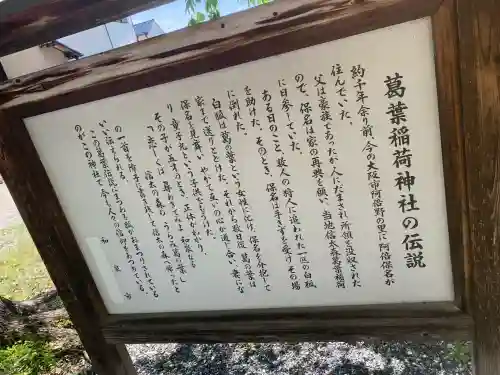 葛葉稲荷神社の伝説
約千年余り前、今の大阪市阿倍野の里に阿倍保名が
住んでいた。
父は豪族であったが、人にだまされ所領を没収された
ので、保名は家の再興を願い、当地信太森葛葉稲荷
に日参していた。
ある日のこと、数人の狩人に追われた一匹の白狐
を助けた。そのとき、保名は手きずを受けその場
に倒れた。
白狐は葛の葉という女性に化け、保名を介抱して
家まで送りとどけた。それから数度葛の葉は
保名を見舞い、やがて互いの心が通じ合い、妻にな
り童子丸という子供をもうけた。
その子が五才のとき、正体がわかり、
「恋しくば 尋ねきてみよ 和泉なる
信太の森の うらみ葛の葉」
の一首を障子に書き残して信太の森へ帰ったと
伝えられる。
この葛葉伝説にまつわる数々がまつられている
のがこの神社で今も人々の信仰をあつめている。
和泉市